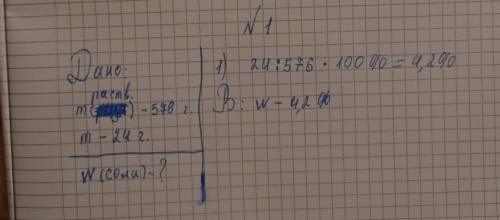 N 1
Дано:
раств.
m( ) - 578 г.
m - 24 г.
W (соли) - ?
1) 24:576 · 100% = 4,2%
В: w - 4,2%